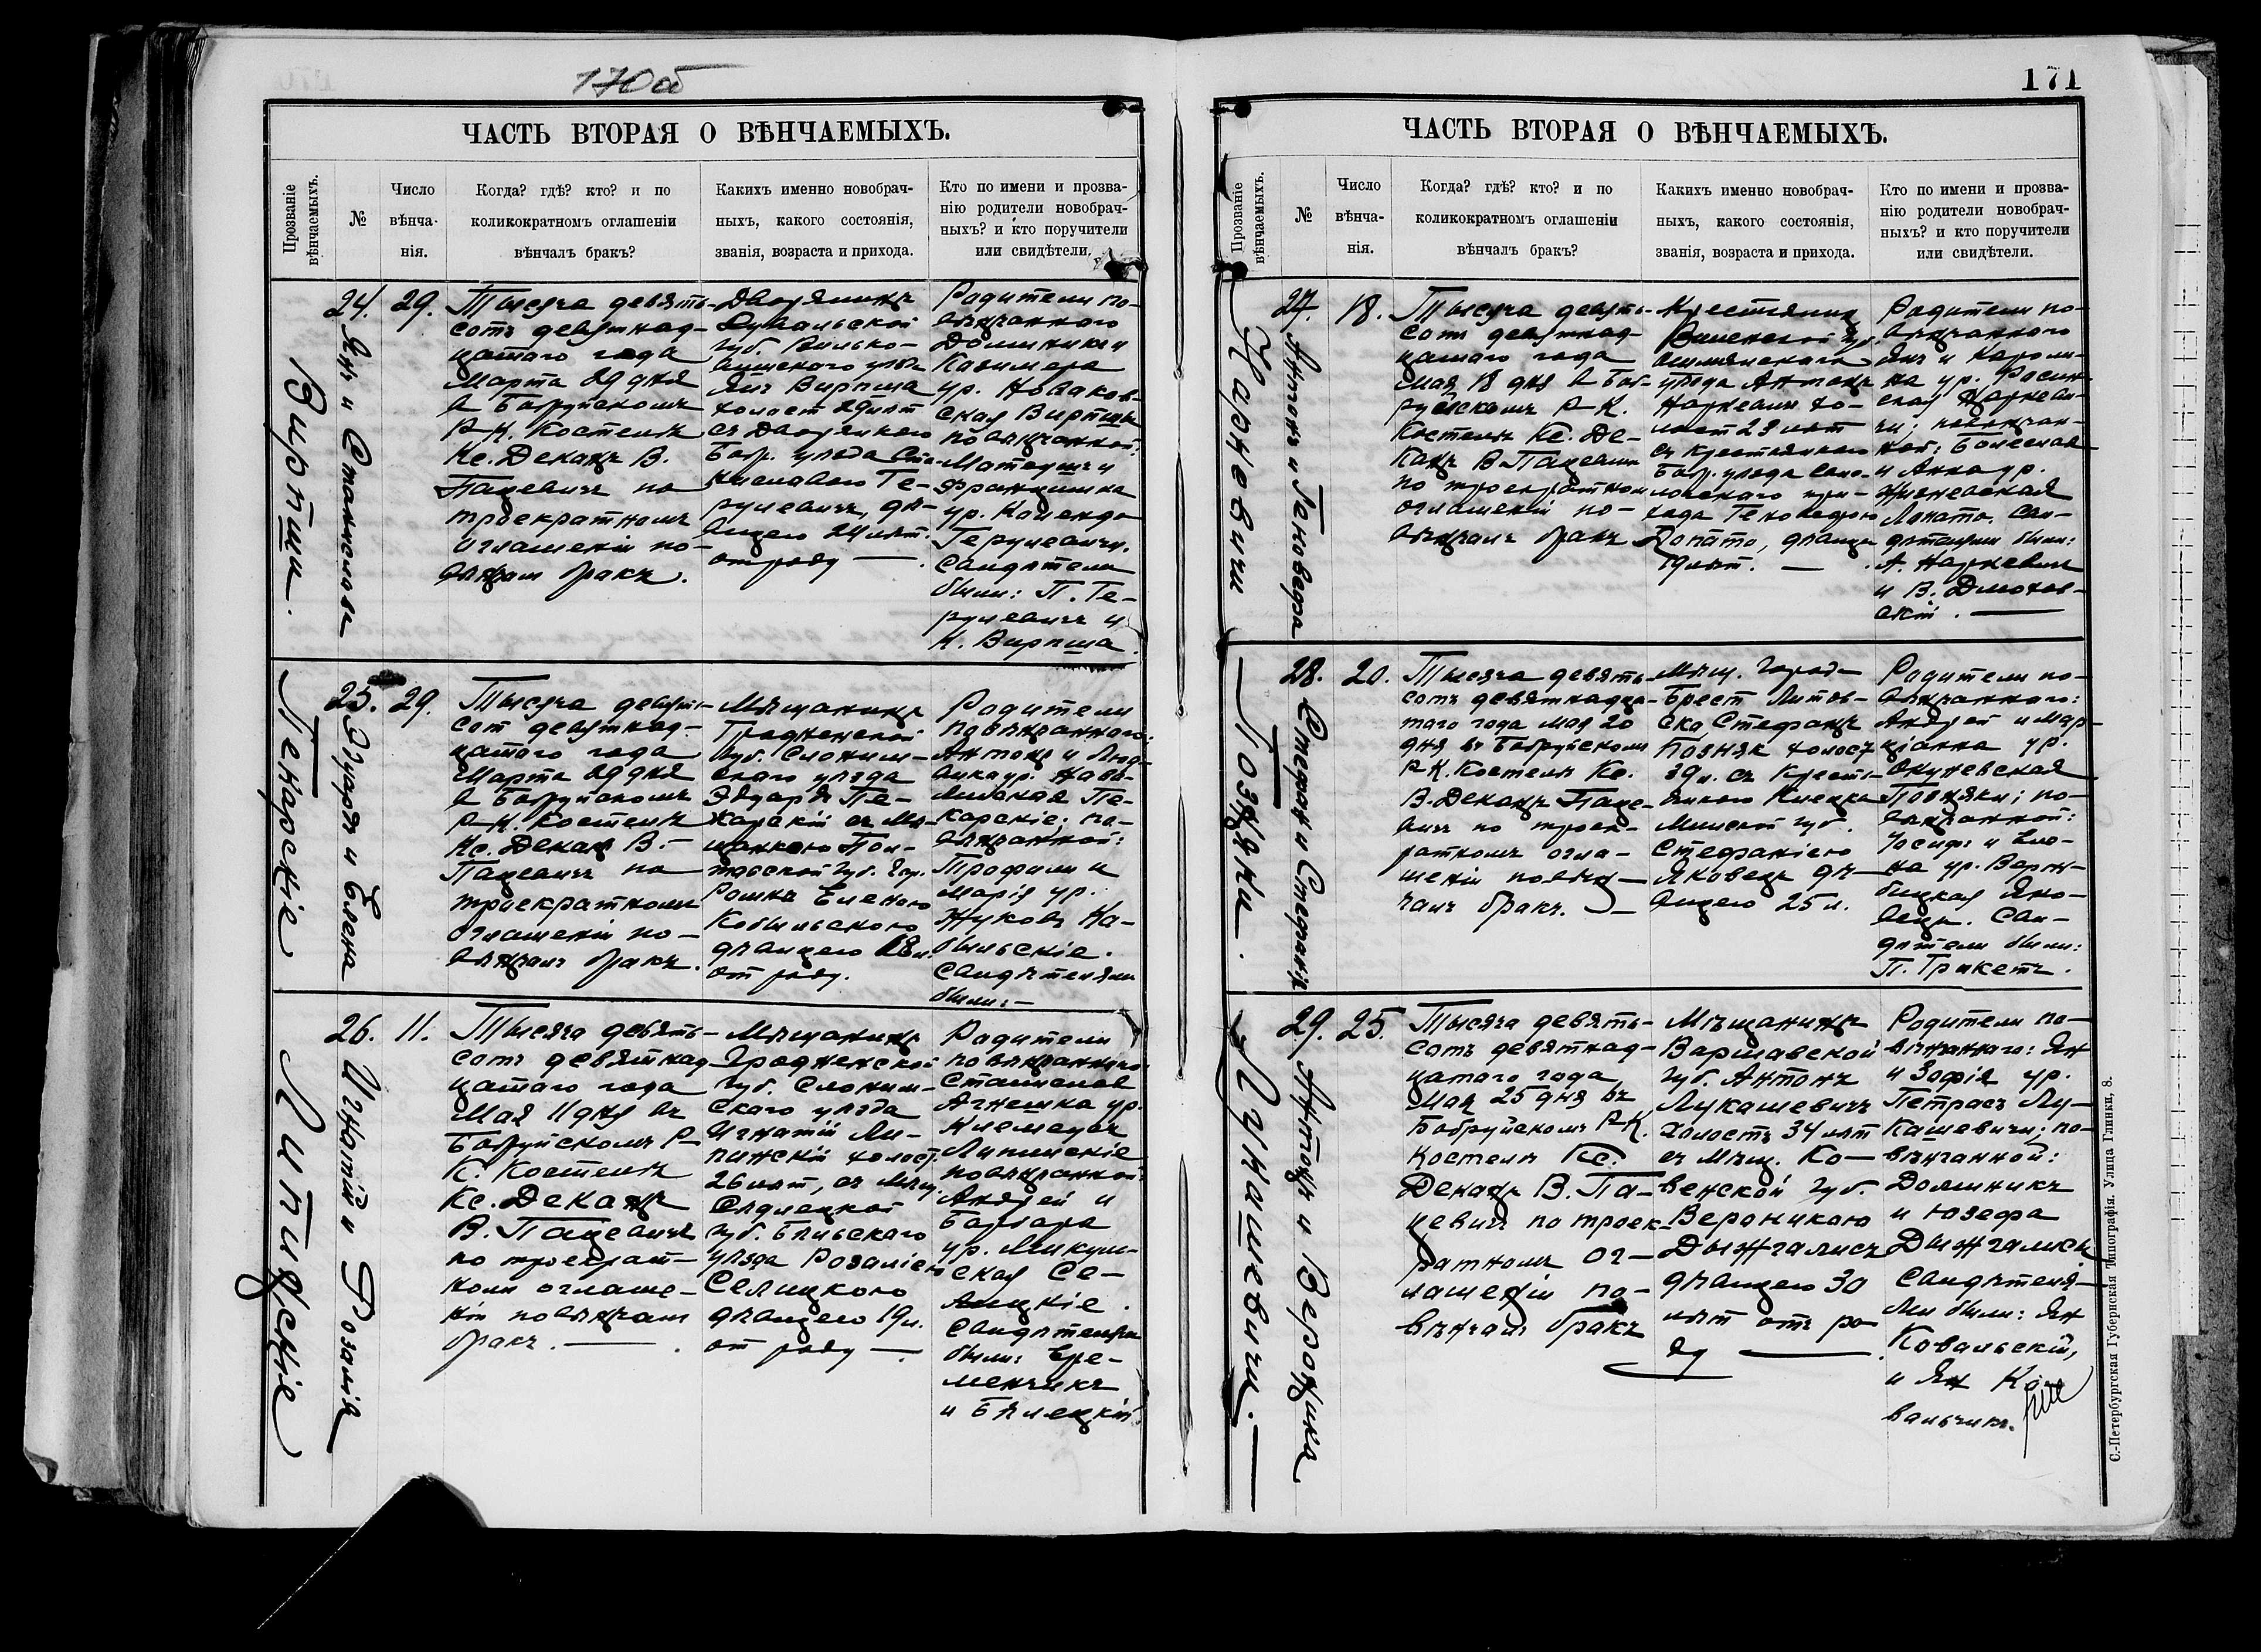 170об
ЧАСТЬ ВТОРАЯ О ВѢНЧАЕМЫХЪ.
Прозваніе
вѣнчаемыхъ.
№
Число
вѣнча-
нія.
Когда? гдѣ? кто? и по
коликократномъ оглашеніи
вѣнчалъ бракъ?
Какихъ именно новобрач-
ныхъ, какого состоянія,
званія, возраста и прихода.
Кто по имени и прозва-
нію родители новобрач-
ныхъ? и кто поручители
или свидѣтели.
Вирпша.
24. Янъ и Станислава
29.
Тысяча девять-
сотъ девятнад-
цатаго года
Марта 29 дня
в Бобруйскомъ
Р-К. Костелѣ
Кс. Деканъ В.
Пацевичъ по
троекратномъ
оглашеніи по-
вѣнчалъ бракъ.
Дворянинъ
Сувальской
губ. Вилько-
вишского уѣзда
Янъ Вирпша
холост 29 лѣт
съ Дворянкою
Бобр. уѣзда Ста-
ниславою Ге-
рулевичъ, дѣ-
вицею 24 лѣт.
отроду —.
Родители по-
вѣнчанного
Доминикъ и
Казимера
ур. Новаков-
ская Вирпши
повѣнчанной:
Матеушъ и
Францишка
ур. Календо
Герулевичи.
Свидѣтели
были: П. Ге-
рулевичъ и
К. Вирпша.
Пекарскіе
25. Эдуардъ и Елена
29.
Тысяча девять-
сот девятнад-
цатого года
Марта 29 дня
в Бобруйскомъ
Р-К. Костелѣ
Кс. Деканъ В.-
Пацевичъ по
троекратномъ
оглашеніи по-
вѣнчалъ бракъ.
Мѣщанинъ
Гродненской
Губ. Слоним-
ского уѣзда
Эдуардъ Пе-
карскій съ Мѣ-
щанкою Пол-
тавской губ. гор.
Ромна Еленою
Кобыльского
дѣвицею 18 л.
от роду.
Родители
повѣнчанного:
Антонъ и Люд-
вика ур.
Пе-
карскіе; по-
вѣнчанной:
Трофим и
Марія ур.
Жуковъ Ко-
быльскіе.
Свидѣтелями
были:—
Липинскіе
26. Игнатій и Розалія
11.
Тысяча девять-
сотъ девятнад-
цатаго года
Мая 11 дня въ
Бобруйскомъ Р-
К. Костелѣ
Кс. Деканъ
В. Пацевичъ
по троекрат-
ном оглаше-
ніи повѣнчалъ
бракъ. —.
Мѣщанинъ
Гродненской
губ. Слоним-
ского уѣзда
Игнатій Ли-
пинскій холост.
26 лѣт, съ мѣщ.
Сѣдлецкой
губ. Бѣльского
уѣзда Розаліею
Селицкою
дѣвицею 19 л.
от роду —.
Родители
повѣнчанного:
Станислав
Агнешка ур.
Липинскіе
повѣнчанной:
Андрей и
Барбара
ур. Микуль-
ская Се-
лицкіе.
Свидѣтелями
были: Ере-
менчикъ
и Бѣлецкій
171
ЧАСТЬ ВТОРАЯ О ВѢНЧАЕМЫХЪ.
Прозваніе
вѣнчаемыхъ.
№
Число
вѣнча-
нія.
Когда? гдѣ? кто? и по
коликократномъ оглашеніи
вѣнчалъ бракъ?
Какихъ именно новобрач-
ныхъ, какого состоянія,
званія, возраста и прихода.
Кто по имени и прозва-
нію родители новобрач-
ныхъ? и кто поручители
или свидѣтели.
Наркевичи
27. Антонъ и Геновефа
18.
Тысяча девять-
сот девятнад-
цатого года
мая 18 дня в Боб-
руйскомъ Р-К.
Костелѣ Кс. Де-
канъ В. Пацевичъ
по троекратном
оглашеніи по-
вѣнчалъ бракъ
Крестьянин
Виленской губ.
Ошмянского
уѣзда Антонъ
Наркевич хо-
лост 23 лѣт
съ Крестьянкою
Бобр. уѣзда
при-
хода Геновефою
Лопато, дѣвице
19 лѣт. —.
Родители по-
вѣнчанного
Янъ и Кароли-
на ур.
Наркеви-
чи; повѣнчан-
ной: Болеслав
и Анна ур.
Лопато. Сви-
дѣтелями были:
А. Наркевич
и В. Дмохов-
скій. —
Позняки.
28. Стефан и Стефанія
20.
Тысяча девять-
сотъ девятнадца-
таго года мая 20
дня въ Бобруйском
Р-К. Костелѣ Кс.
В. Деканъ Паце-
вичъ по троек-
ратномъ огла-
шеніи повѣн-
чалъ бракъ. —
Мѣщ. город-
Брест Литов-
ска Стефанъ
Позняк холост
39 л. съ Кресть-
янкою
Минской губ.
Стефаніею
Яковецъ дѣ-
вицею 25 л.
Родители по-
вѣнчанного:
Андрей и Мар-
ціанна ур.
Окуневская
Позняки; по-
вѣнчанной:
Іосифъ и Еле-
на ур.
Яко-
вецъ. Сви-
дѣтели были:
П. Трикетъ.
Лукашевичи.
29. Антонъ и Вероника
25.
Тысяча девять-
сотъ девятнад-
цатого года
Мая 25 дня въ
Бобруйскомъ Р-К.
костелѣ Кс.
Деканъ В. Па-
цевичъ по троек-
ратномъ ог-
лашеніи по-
вѣнчалъ бракъ
Мѣщанинъ
Варшавской
губ. Антонъ
Лукашевичъ
холостъ 34 лѣт
съ Мѣщ. Ко-
венской губ.
Вероникою
Дынгалисъ
дѣвицею 30
лѣт отъ ро-
ду —.
Родители по-
вѣнчаннаго: Ян
и Зофія ур.
Петрасъ Лу-
кашевичи; по-
вѣнчанной:
Доминикъ
и Юзефа
Дынгалисы
Свидѣтеля-
ми были: Ян
Ковальскій,
и Ян Ко-
вальчикъ.
С.-Петербургская Губернская Типографія. Улица Глинки, 8.